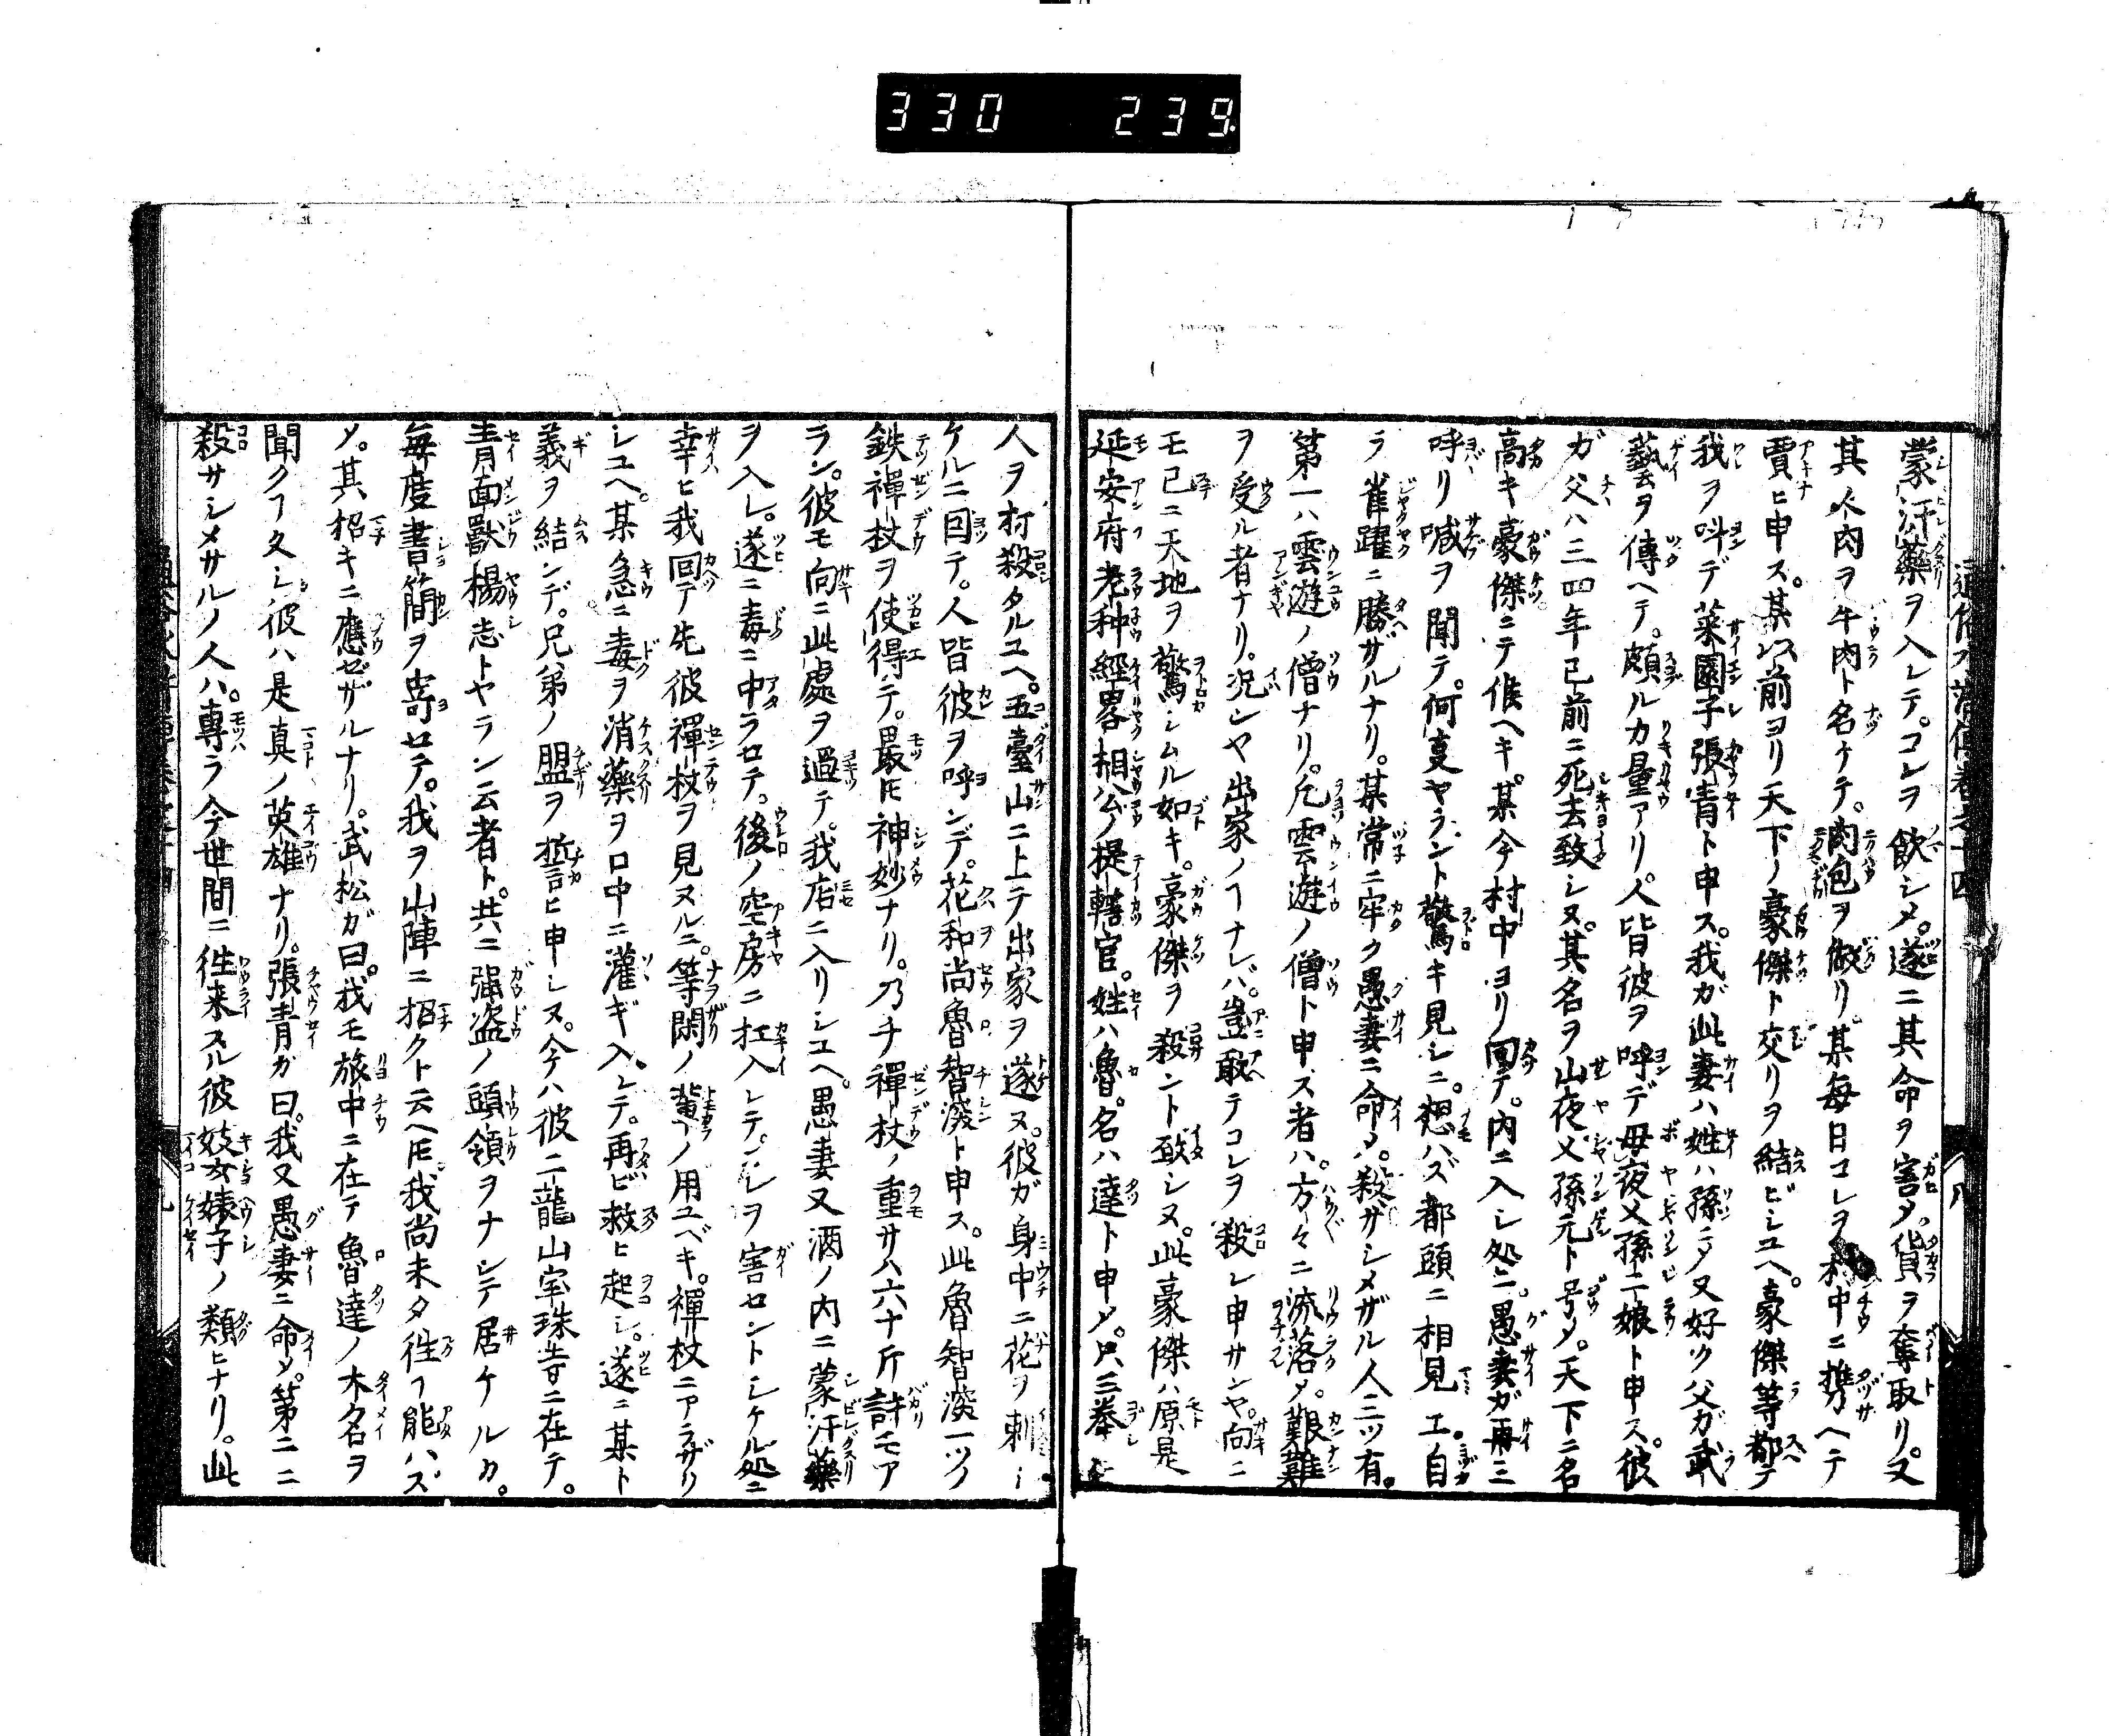 330 239
蒙汗藥ヲ入レテ。コレヲ飲シメ。遂ニ其命ヲ害〆。貨ヲ奪取リ。又
其人肉ヲ牛肉ト名ケテ。肉包ヲ做リ某毎日コレヲ村中ニ携ヘテ
賈ヒ申ス。某ハ前ヨリ天下ノ豪傑ト交リヲ結ビシユヘ。豪傑等都テ
我ヲ呌デ菜園子張青ト申ス。我ガ此妻ハ姓ハ孫ニ〆又好ク父ガ武
藝ヲ傳ヘテ。頗ル力量アリ。人皆彼ヲ呼デ母夜叉孫二娘ト申ス。彼
ガ父ハ三四年已前ニ死去致シヌ。其名ヲ山夜叉孫元ト号〆。天下ニ名
高キ豪傑ニテ候ヘキ。某今村中ヨリ回テ。内ニ入シ処ニ。愚妻ガ再三
呼リ喊ヲ聞テ。何事ヤラント驚キ見シニ。想ハズ都頭ニ相見エ。自
ラ雀躍ニ勝ザルナリ。某常ニ牢ク愚妻ニ命〆。殺ザシメザル人三ツ有。
第一ハ雲遊ノ僧ナリ。凡雲遊ノ僧ト申ス者ハ。方々ニ流落〆。艱難
ヲ受ル者ナリ。况ンヤ出家ノヿナレバ。豈敢テコレヲ殺シ申サンヤ。向ニ
モ已ニ天地ヲ驚シムル如キ。豪傑ヲ殺ント致シヌ。此豪傑ハ原是
延安府老种經畧相公ノ提轄官。姓ハ魯。名ハ達ト申〆。只三拳ニ
人ヲ打殺タルユヘ。五臺山ニ上テ出家ヲ遂ヌ。彼ガ身中ニ花ヲ刺シ
ケルニ因テ。人皆彼ヲ呼ンデ。花和尚魯智深ト申ス。此魯智深一ツノ
鉄禪杖ヲ使得テ。最𪜈神妙ナリ。乃チ禪杖ノ重サハ六十斤許モア
ラン。彼モ向ニ此處ヲ過テ。我店ニ入リシユヘ。愚妻又酒ノ内ニ蒙汗藥
ヲ入レ。遂ニ毒ニ中ラセテ。後ノ空房ニ扛入レテ。コレヲ害セントシケル処ニ
幸ヒ我回テ先彼禪杖ヲ見ヌルニ。等閑ノ輩ノ用ユベキ。禪杖ニアラザリ
シユヘ。某急ニ毒ヲ消藥ヲ口中ニ灌ギ入レテ。再ビ救ヒ起シ。遂ニ某ト
義ヲ結ンデ。兄弟ノ盟ヲ誓ヒ申シヌ。今ハ彼二龍山宝珠寺ニ在テ。
青面獸楊志トヤラン云者ト。共ニ強盗ノ頭領ヲナシテ居ケルカ。
毎度書簡ヲ寄セテ。我ヲ山陣ニ招クト云ヘ𪜈。我尚未タ徃ヿ能ハズ
〆。其招キニ應ゼザルナリ。武松ガ曰。我モ旅中ニ在テ魯達ノ大名ヲ
聞クヿ久シ。彼ハ是真ノ英雄ナリ。張青ガ曰。我又愚妻ニ命〆。第二ニ
殺サシメサルノ人ハ。專ラ今世間ニ徃来スル彼妓女婊子ノ類ヒナリ。此